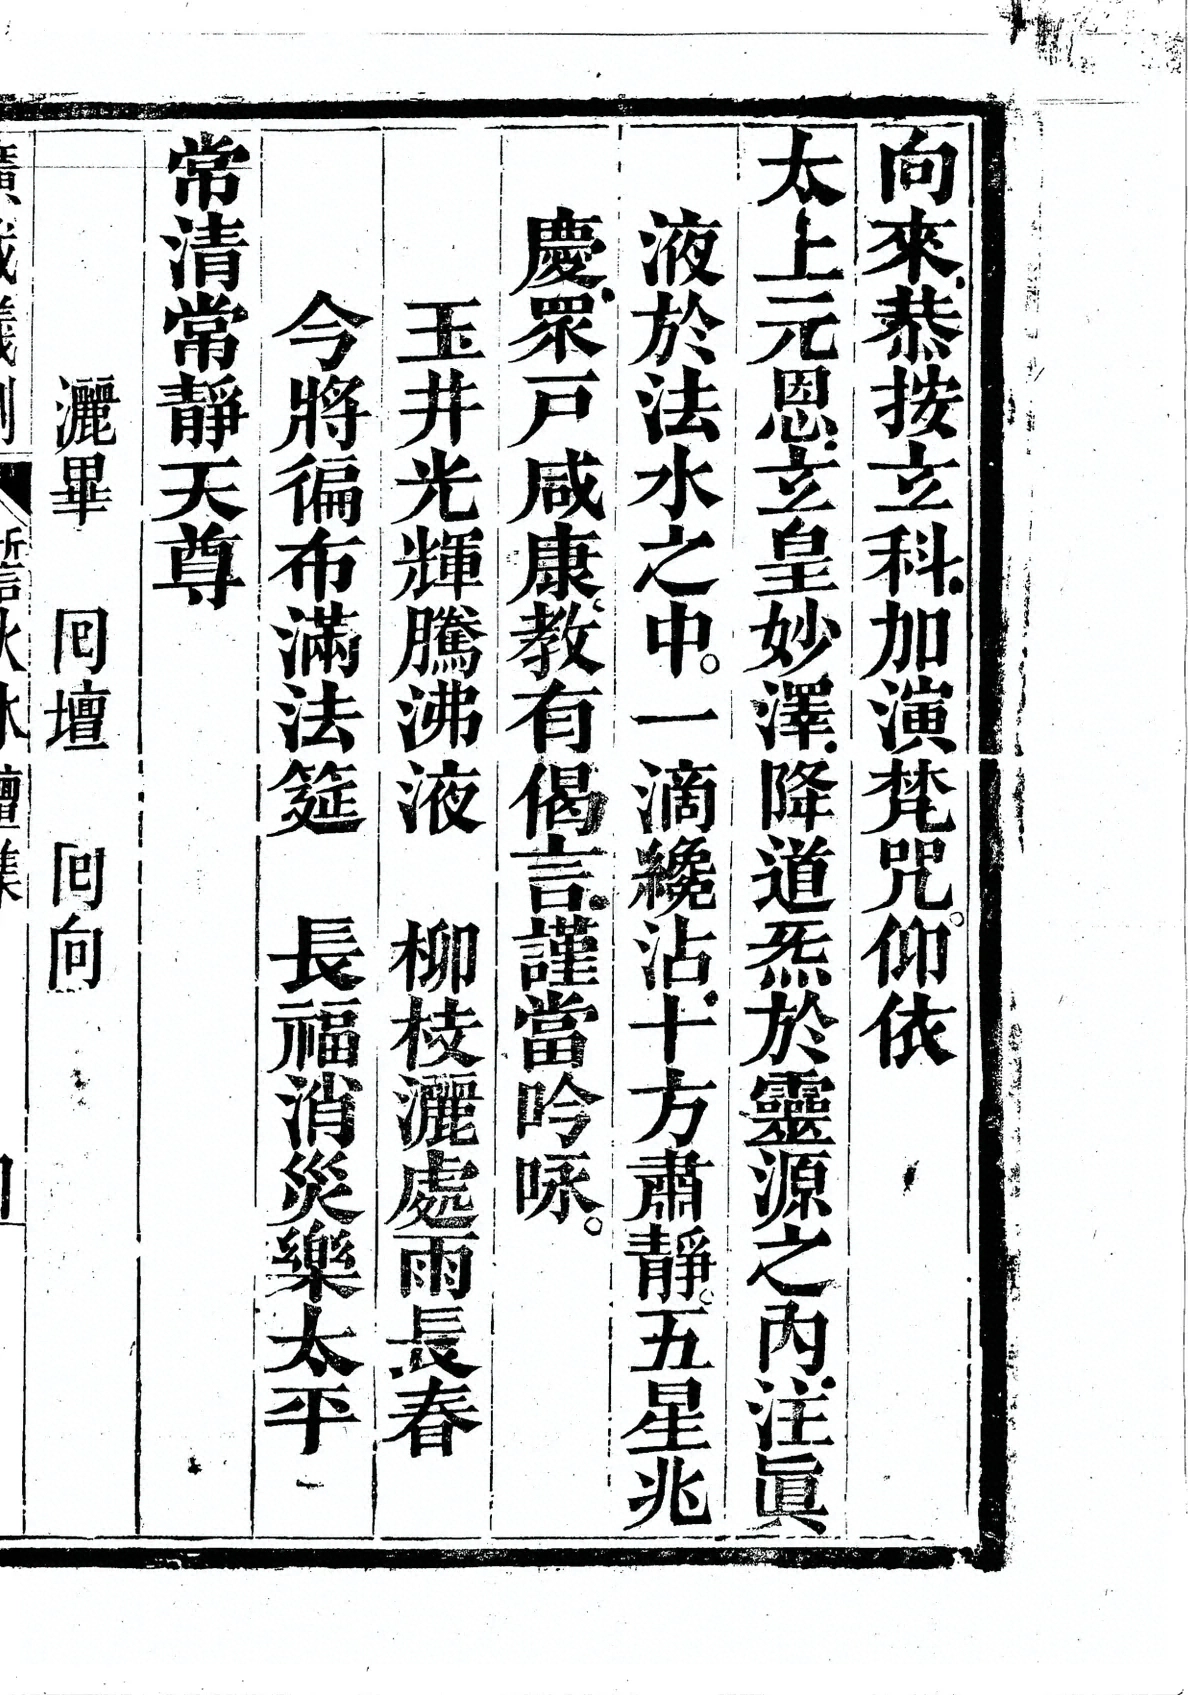 向來、恭按立科、加演梵咒。仰依
太上元恩、立皇妙澤、降道炁於靈源之內、注眞
液於法水之中。一滴纔沾、十方肅靜。五星兆
慶、眾戸咸康、教有偈言、謹當吟咏。
玉井光輝騰沸液 柳枝灑處雨長春
今將徧布滿法筵 長福消災樂太平
常清常靜天尊
灑畢 囘壇 囘向
廣成儀制 水壇集